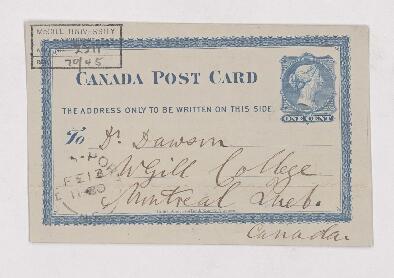 McGILL UNIVERSITY
2211
70/45
CANADA POST CARD
ONE CENT
THE ADDRESS ONLY TO BE WRITTEN ON THIS SIDE
To Dr. Dawson
McGill College
Montreal Queb.
Canada.